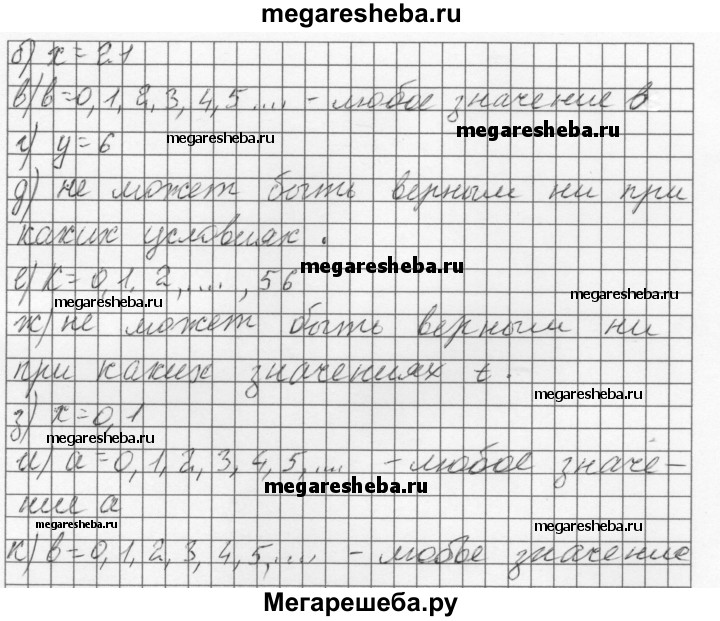 megaresheba.ru
б) x = 21
в) в = 0, 1, 2, 3, 4, 5 .... - любое значение в
megaresheba.ru
г) y = 6
megaresheba.ru
д) не может быть верным ни при
каких условиях .
megaresheba.ru
е) K = 0, 1, 2, ...., 56
megaresheba.ru
megaresheba.ru
ж) не может быть верным ни
при каких значениях t.
megaresheba.ru
з) x = 0, 1
megaresheba.ru
и) a = 0, 1, 2, 3, 4, 5, .... - любое значе-
megaresheba.ru
ние a
megaresheba.ru
megaresheba.ru
к) в = 0, 1, 2, 3, 4, 5, .... - любое значение
Мегарешеба.ру